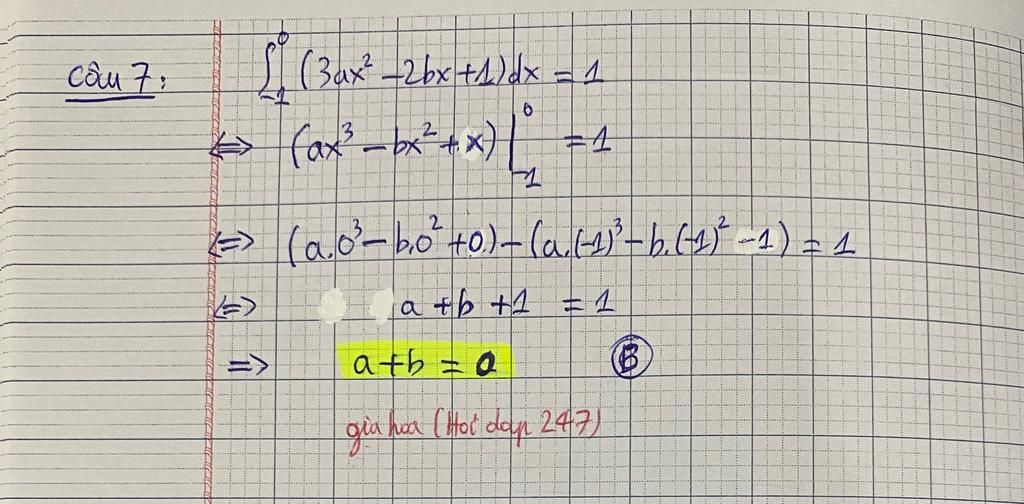 Câu 7: ∫₋₁⁰ (3ax² - 2bx + 1)dx = 1
⇔ (ax³ - bx² + x)|₋₁⁰ = 1
⇔ (a.0³ - b.0² + 0) - (a.(-1)³ - b.(-1)² - 1) = 1
⇔ a + b + 1 = 1
⇒ a + b = 0 Ⓑ
gia hoa (Hoi dap 247)